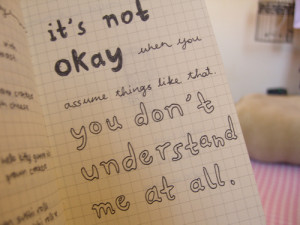 it's not
okay when you
assume things like that.
you don't
understand
me at all.